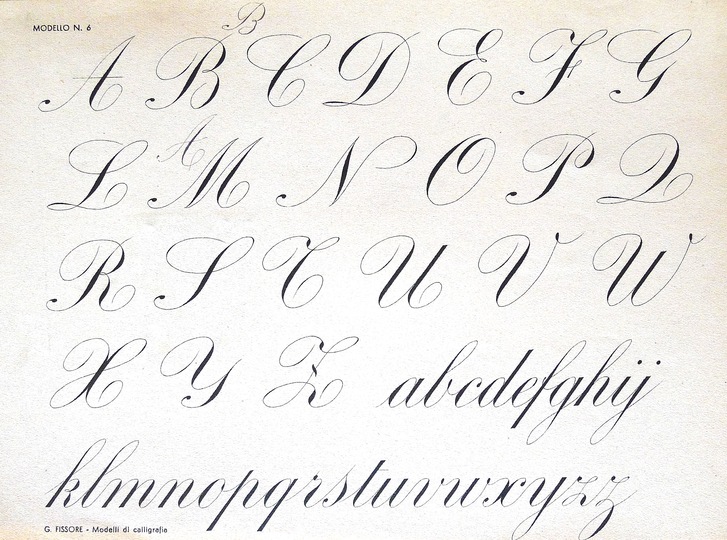 MODELLO N. 6
B
A B C D E F G
A
L M N O P Q
R S T U V W
X Y Z abcdefghij
klmnopqrstuvwxyzz
G. FISSORE - Modelli di calligrafia